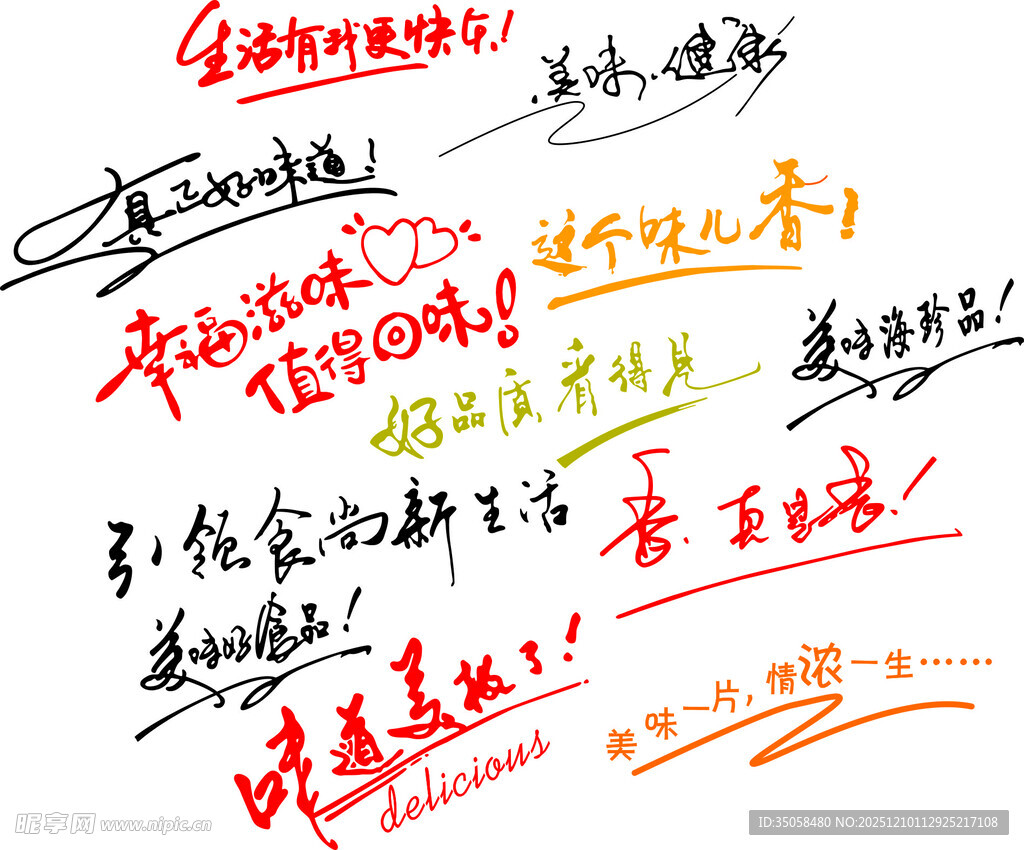 生活有我更快乐!
美味.健康
真正好味道!
这个味儿香!
幸福滋味
值得回味!
美味海珍品!
好品质,看得见
引领食尚新生活
香.真是香!
美味好食品!
味道美极了!
delicious
美味一片,情浓一生……
昵享网 www.nipic.cn
ID:35058480 NO:20251210112925217108